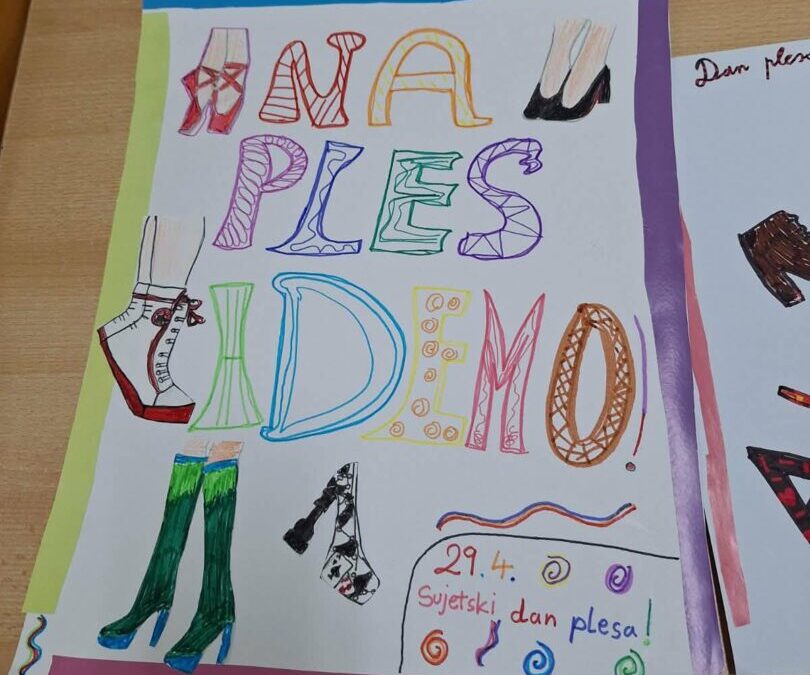 NA
PLES
IDEMO!
29.4.
Sujetski dan plesa!
Dan plesa